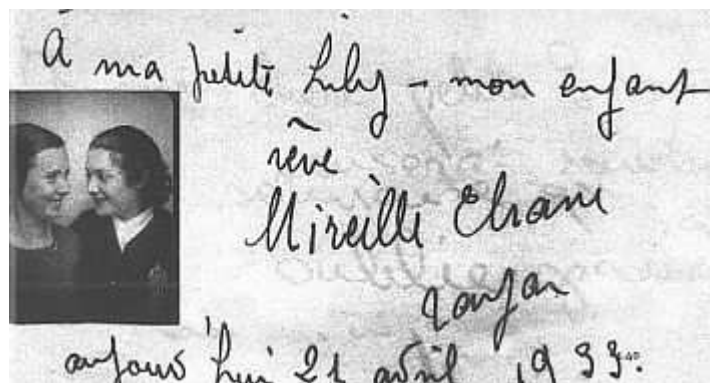 À ma petite – mon enfant
rêve
Mireille
aujourd'hui 21 avril 1933.